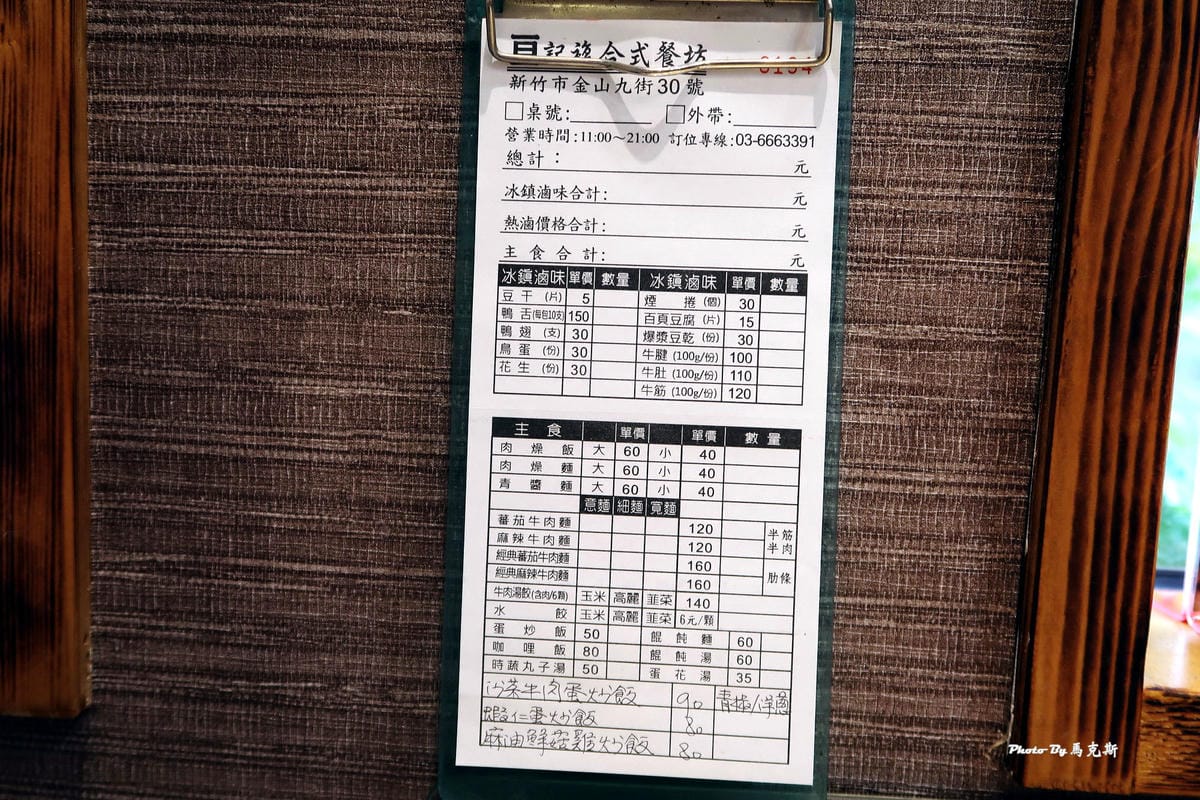 記複合式餐坊 0194
新竹市金山九街30號
桌號: 外帶:
營業時間:11:00～21:00 訂位專線:03-6663391
總計： 元
冰鎮滷味合計: 元
熱滷價格合計: 元
主食合計: 元
冰鎮滷味 單價 數量 冰鎮滷味 單價 數量
豆干(片) 5 煙捲(個) 30
鴨舌(每包10支) 150 百頁豆腐(片) 15
鴨翅(支) 30 爆漿豆乾(份) 30
鳥蛋(份) 30 牛腱(100g/份) 100
花生(份) 30 牛肚(100g/份) 110
牛筋(100g/份) 120
主食 單價 單價 數量
肉燥飯 大 60 小 40
肉燥麵 大 60 小 40
青醬麵 大 60 小 40
意麵 細麵 寬麵
蕃茄牛肉麵 120 半筋
麻辣牛肉麵 120 半肉
經典蕃茄牛肉麵 160
經典麻辣牛肉麵 160 肋條
牛肉湯餃(含肉/6顆) 玉米 高麗 韮菜 140
水餃 玉米 高麗 韮菜 6元/顆
蛋炒飯 50 餛飩麵 60
咖哩飯 80 餛飩湯 60
時蔬丸子湯 50 蛋花湯 35
沙茶牛肉蛋炒飯 90 青椒/洋蔥
蝦仁蛋炒飯 80
麻油鮮菇雞炒飯 80
Photo By 馬克斯